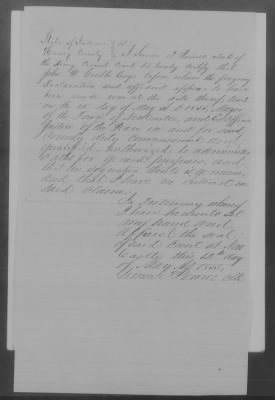 State of Indiana
Henry County } I James T clerk of
the Henry Circuit Court do hereby certify that
John W. before whom the foregoing
declaration and affidavit appears to have
been made was at the date thereof to wit
on the day of May A.D. 1855. Mayor
of the Town of and Ex officio
Justice of the Peace in and for said
County duly Commissioned and
qualified authorized to administer
oaths for general purposes, and
that his signature thereto is genuine,
And that I have no interest in
said claim.
In testimony whereof
I have hereunto set
my hand and
affixed the seal
of said Court at New
Castle this 12th day
of May AD 1855.
Clk